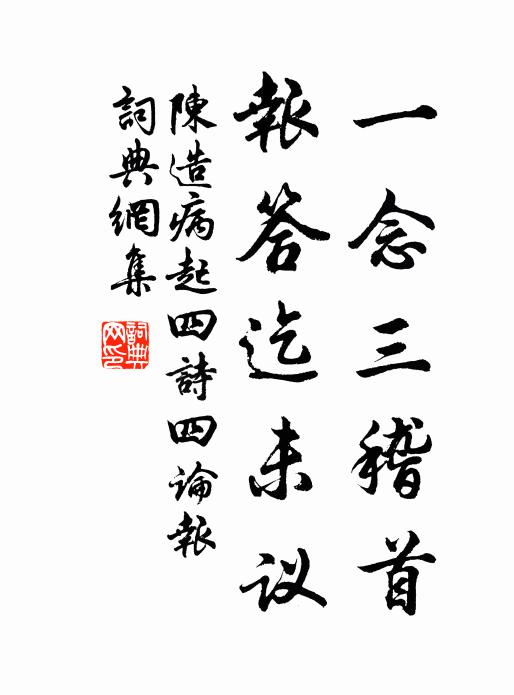 一念三稽首
報答迄未议
陳造病起四詩四論報
詞典網集
詞典網印